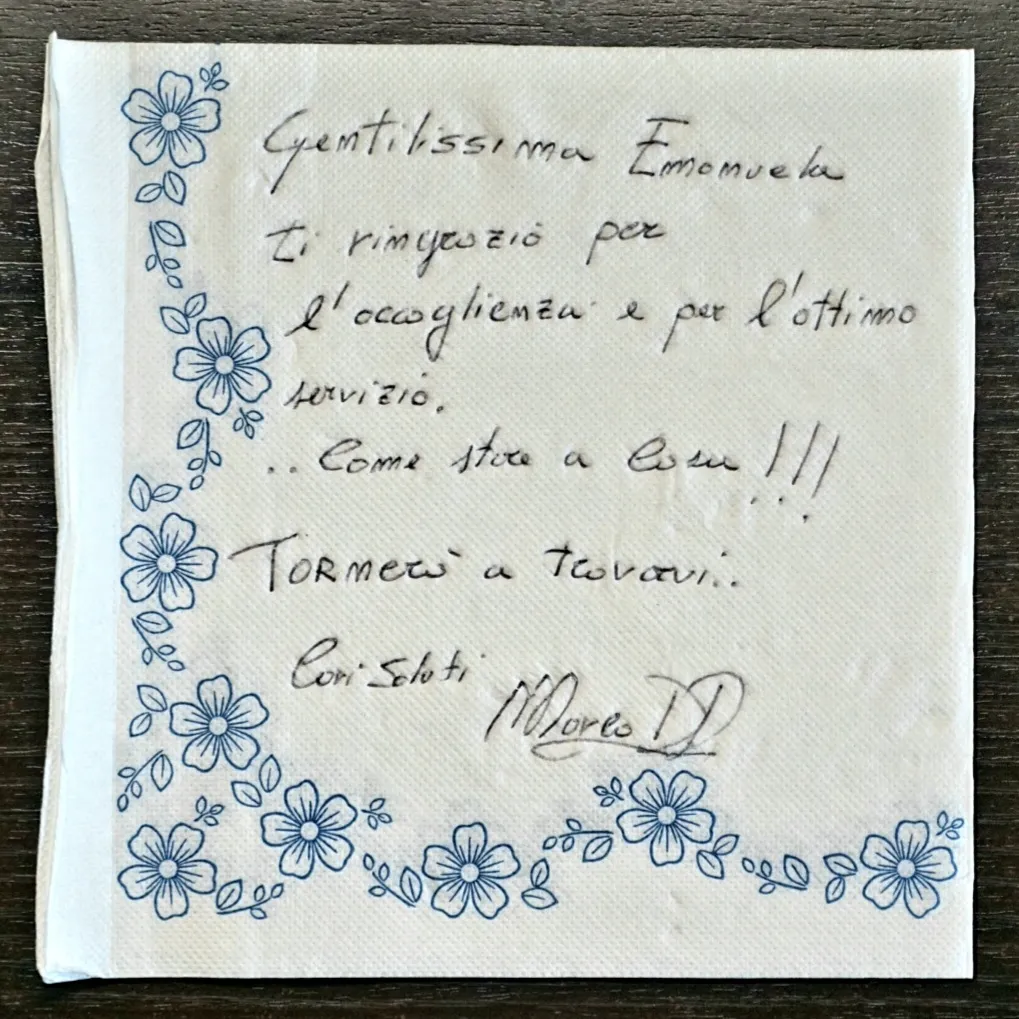 Gentilissima Emanuela
ti ringrazio per
l'accoglienza e per l'ottimo
servizio.
.. Come stare a Casa !!!
Tornerò a trovarvi..
Cari Saluti
Marco D